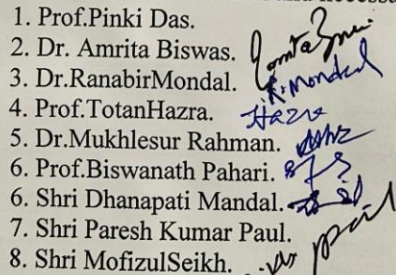 1. Prof.Pinki Das.
2. Dr. Amrita Biswas.
3. Dr.RanabirMondal. R.Mondal
4. Prof.TotanHazra. Hazra
5. Dr.Mukhlesur Rahman.
6. Prof.Biswanath Pahari.
6. Shri Dhanapati Mandal.
7. Shri Paresh Kumar Paul.
8. Shri MofizulSeikh.